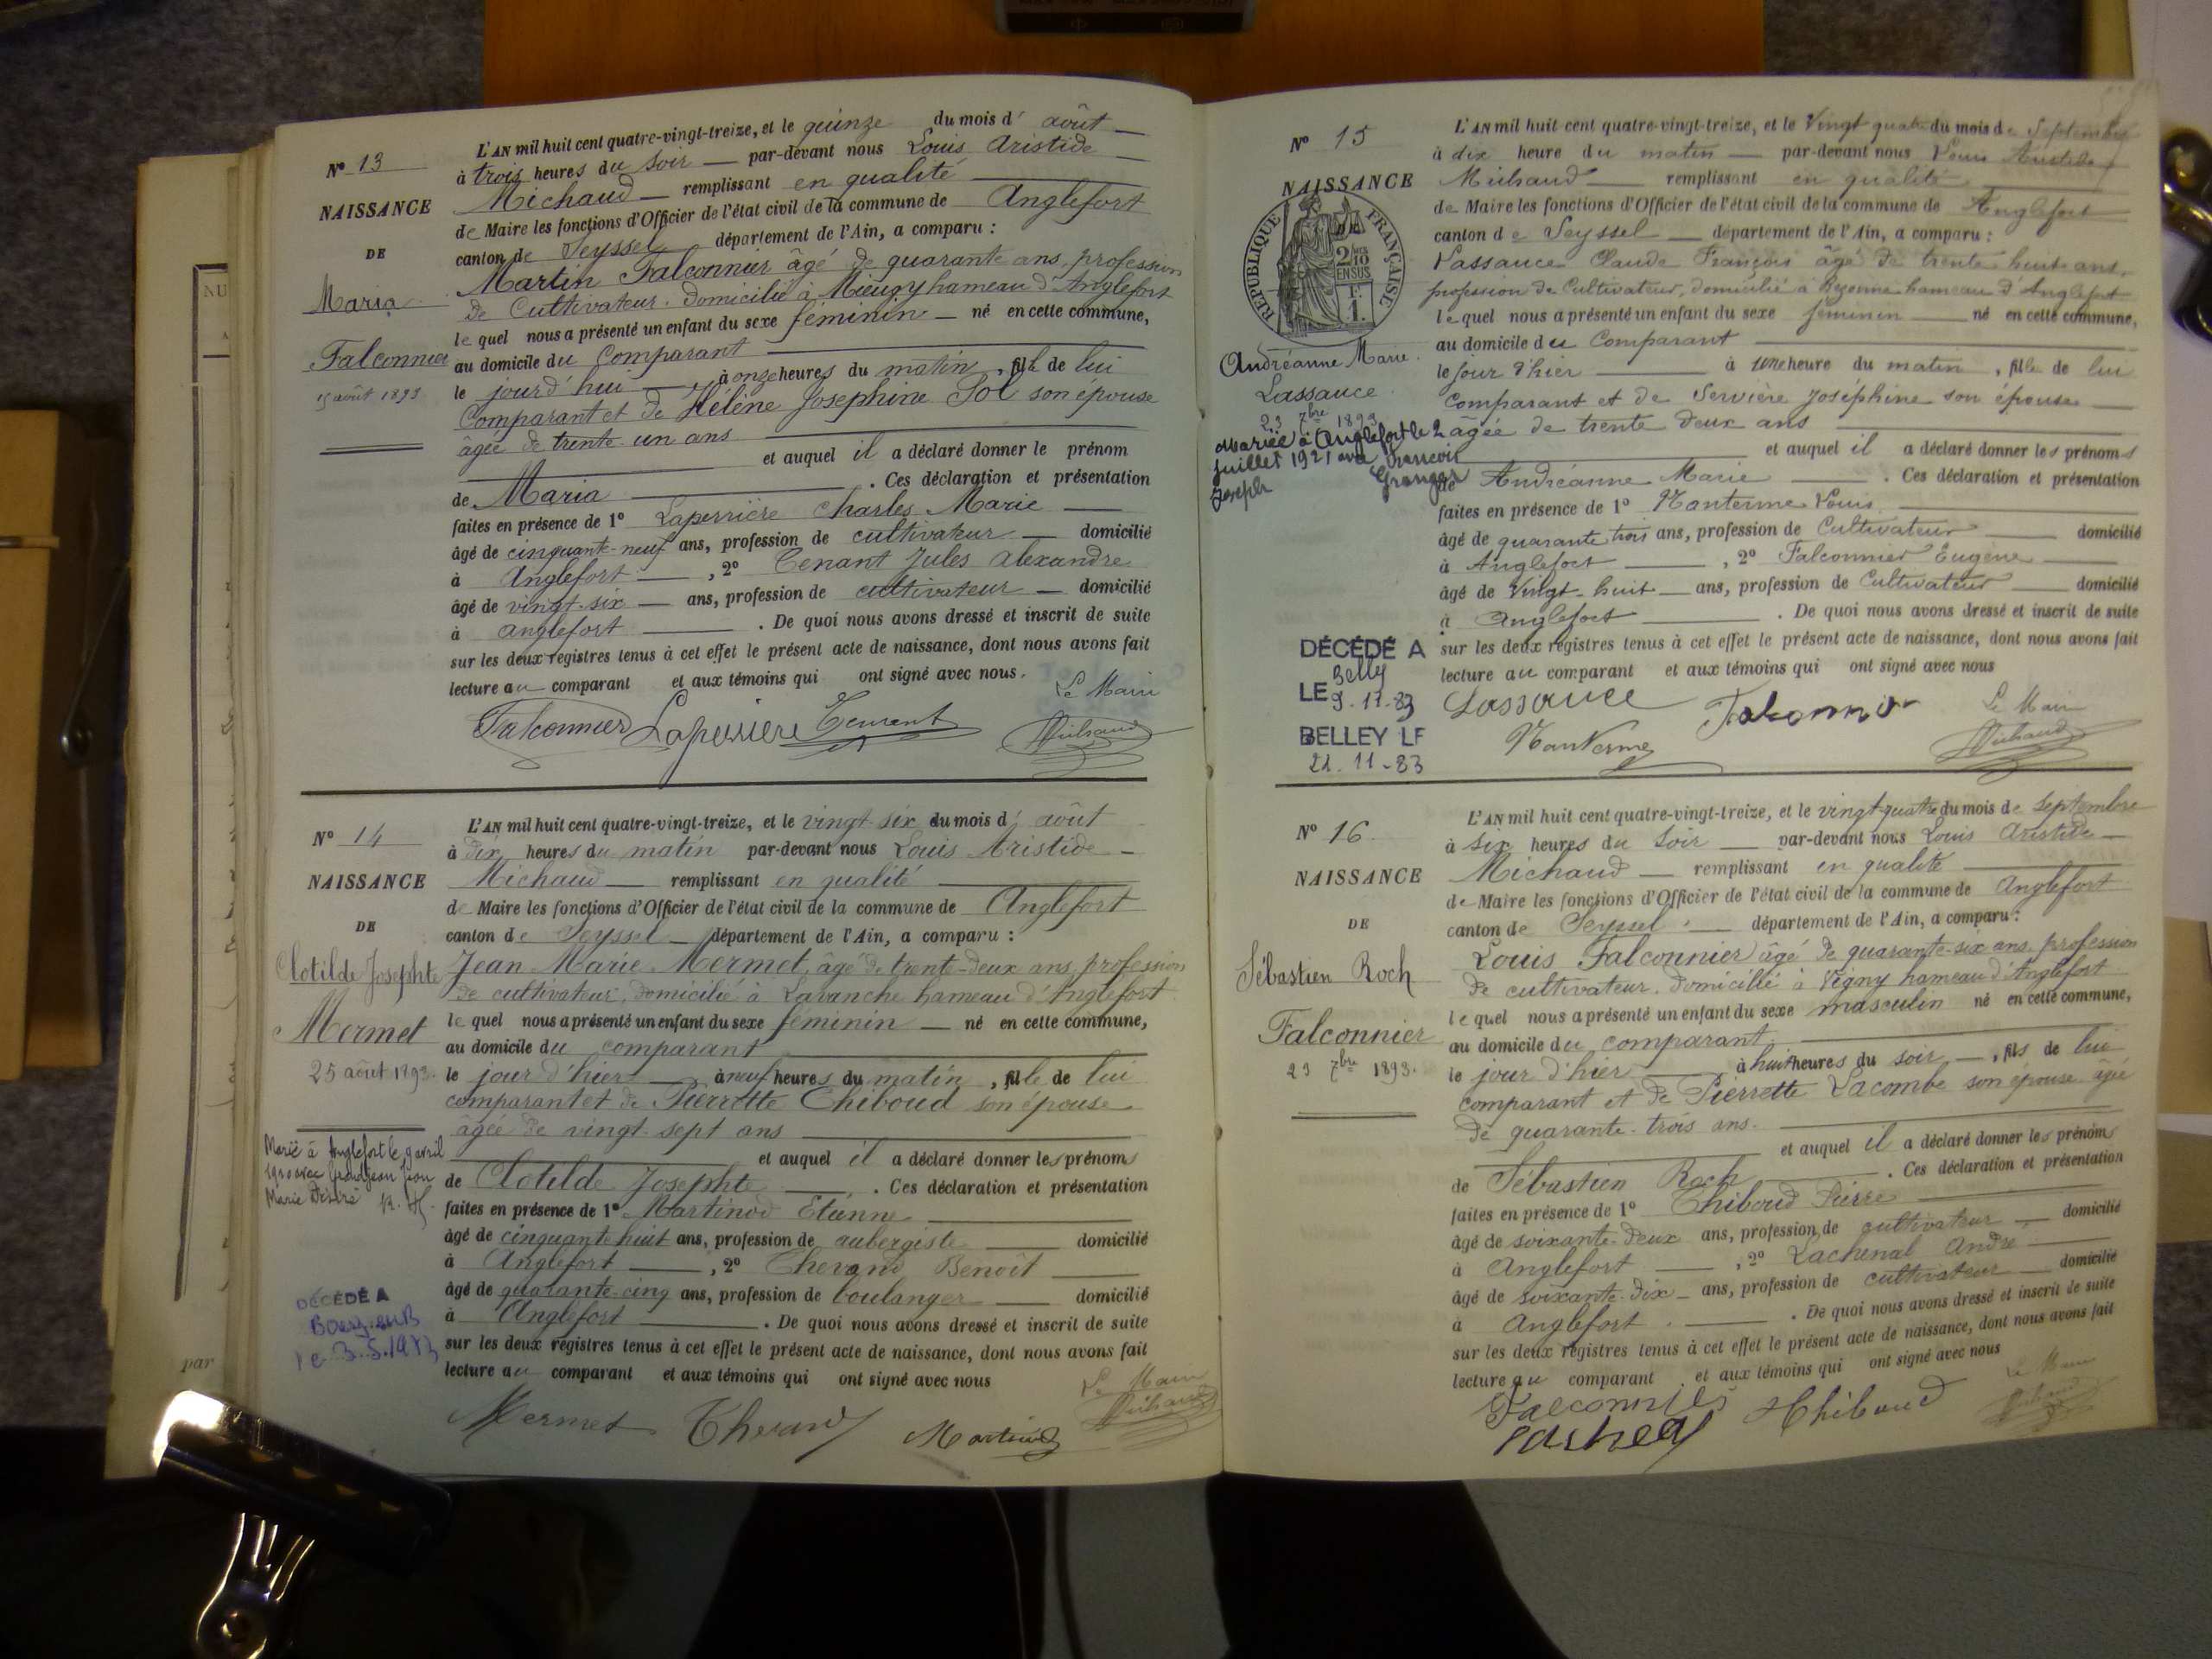 N° 13
NAISSANCE
DE
Maria
Falconnier
15 août 1893
L'AN mil huit cent quatre-vingt-treize, et le quinze du mois d' août
à trois heures du soir par-devant nous Louis Aristide
Michaud remplissant en qualité
de Maire les fonctions d'Officier de l'état civil de la commune de Anglefort
canton de Seyssel département de l'Ain, a comparu :
Martin Falconnier âgé de quarante ans, profession
de Cultivateur, domicilié à Mieugy hameau d'Anglefort
lequel nous a présenté un enfant du sexe féminin né en cette commune,
au domicile du Comparant
le jourd'hui à onze heures du matin, fille de lui
Comparant et de Hélène Josephine Sol son épouse
âgée de trente-un ans
et auquel il a déclaré donner le prénom
de Maria . Ces déclaration et présentation
faites en présence de 1° Laperrière Charles Marie
âgé de cinquante-neuf ans, profession de cultivateur domicilié
à Anglefort , 2° Tenant Jules Alexandre
âgé de vingt-six ans, profession de cultivateur domicilié
à anglefort . De quoi nous avons dressé et inscrit de suite
sur les deux registres tenus à cet effet le présent acte de naissance, dont nous avons fait
lecture au comparant et aux témoins qui ont signé avec nous.
Le Maire
Falconnier Laperrière Tenant Michaud
N° 14
NAISSANCE
DE
Clotilde Josephte
Mermet
25 août 1893.
Marié à Anglefort le 9 avril
1920 avec Grandjean Jean
Marie Désiré
DÉCÉDÉ A
L'AN mil huit cent quatre-vingt-treize, et le vingt-six du mois d' août
à dix heures du matin par-devant nous Louis Aristide
Michaud remplissant en qualité
de Maire les fonctions d'Officier de l'état civil de la commune de Anglefort
canton de Seyssel département de l'Ain, a comparu :
Jean Marie Mermet, âgé de trente-deux ans, profession
de cultivateur, domicilié à Lavanche hameau d'Anglefort
lequel nous a présenté un enfant du sexe féminin né en cette commune,
au domicile du comparant
le jour d'hier à neuf heures du matin, fille de lui
comparant et de Pierrette Thiboud son épouse
âgée de vingt-sept ans
et auquel il a déclaré donner les prénoms
de Clotilde Josephte . Ces déclaration et présentation
faites en présence de 1° Martinod Etienne
âgé de cinquante huit ans, profession de aubergiste domicilié
à Anglefort , 2° Thevand Benoît
âgé de quarante-cinq ans, profession de boulanger domicilié
à Anglefort . De quoi nous avons dressé et inscrit de suite
sur les deux registres tenus à cet effet le présent acte de naissance, dont nous avons fait
lecture au comparant et aux témoins qui ont signé avec nous
Le Maire
Mermet Thevand Martinod Michaud
par
N° 15
NAISSANCE
RÉPUBLIQUE FRANÇAISE
2/10
EN SUS
1 F.
Andréanne Marie
Lassauce
23 7bre 1893
Mariée à Anglefort le 2
juillet 1921 avec François
Joseph Granger
DÉCÉDÉ A
Belley
LE 9.11.83
BELLEY LE
21.11.83
L'AN mil huit cent quatre-vingt-treize, et le Vingt quatre du mois de Septembre
à dix heure du matin par-devant nous Louis Aristide
Michaud remplissant en qualité
de Maire les fonctions d'Officier de l'état civil de la commune de Anglefort
canton de Seyssel département de l'Ain, a comparu :
Lassauce Claude François âgé de trente huit ans,
profession de Cultivateur, domicilié à hameau d'Anglefort
lequel nous a présenté un enfant du sexe féminin né en cette commune,
au domicile du Comparant
le jour d'hier à une heure du matin, fille de lui
Comparant et de Servière Joséphine son épouse
âgée de trente deux ans
et auquel il a déclaré donner les prénoms
de Andréanne Marie . Ces déclaration et présentation
faites en présence de 1° Nanterme Louis
âgé de quarante trois ans, profession de Cultivateur domicilié
à Anglefort , 2° Falconnier Eugène
âgé de Vingt-huit ans, profession de Cultivateur domicilié
à Anglefort . De quoi nous avons dressé et inscrit de suite
sur les deux registres tenus à cet effet le présent acte de naissance, dont nous avons fait
lecture au comparant et aux témoins qui ont signé avec nous
Lassauce Falconnier Le Maire
Nanterme Michaud
N° 16
NAISSANCE
DE
Sébastien Roch
Falconnier
23 7bre 1893.
L'AN mil huit cent quatre-vingt-treize, et le vingt-quatre du mois de Septembre
à six heures du soir par-devant nous Louis Aristide
Michaud remplissant en qualité
de Maire les fonctions d'Officier de l'état civil de la commune de Anglefort
canton de Seyssel département de l'Ain, a comparu :
Louis Falconnier âgé de quarante-six ans, profession
de cultivateur, domicilié à Vigny hameau d'Anglefort
lequel nous a présenté un enfant du sexe masculin né en cette commune,
au domicile du comparant
le jour d'hier à huit heures du soir, fils de lui
comparant et de Pierrette Lacombe son épouse âgée
de quarante-trois ans.
et auquel il a déclaré donner les prénoms
de Sébastien Roch . Ces déclaration et présentation
faites en présence de 1° Thiboud Pierre
âgé de soixante-deux ans, profession de cultivateur domicilié
à Anglefort , 2° Lachenal André
âgé de soixante-dix ans, profession de cultivateur domicilié
à Anglefort . De quoi nous avons dressé et inscrit de suite
sur les deux registres tenus à cet effet le présent acte de naissance, dont nous avons fait
lecture au comparant et aux témoins qui ont signé avec nous
Le Maire
Falconnier Thiboud Michaud